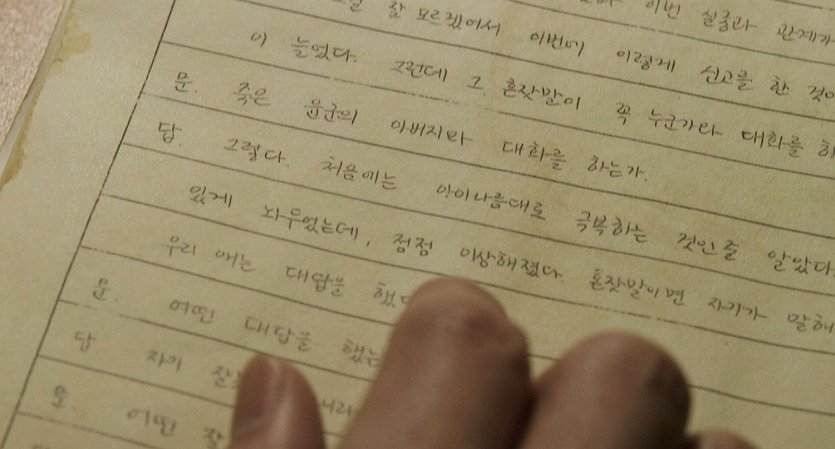 잘 모르겠어서 이번에 이렇게 신고를 한 것이
이번 실종과 관계가
이 늘었다. 그런데 그 혼잣말이 꼭 누군가와 대화를 하
문. 죽은 윤군의 아버지와 대화를 하는가.
답. 그렇다. 처음에는 아이나름대로 극복하는 것인줄 알았다
있게 놔두었는데, 점점 이상해졌다. 혼잣말이면 자기가 말해
우리 애는 대답을 했다
문 어떤 대답을 했는
답 자기 잘 니라
문 어떤 잘